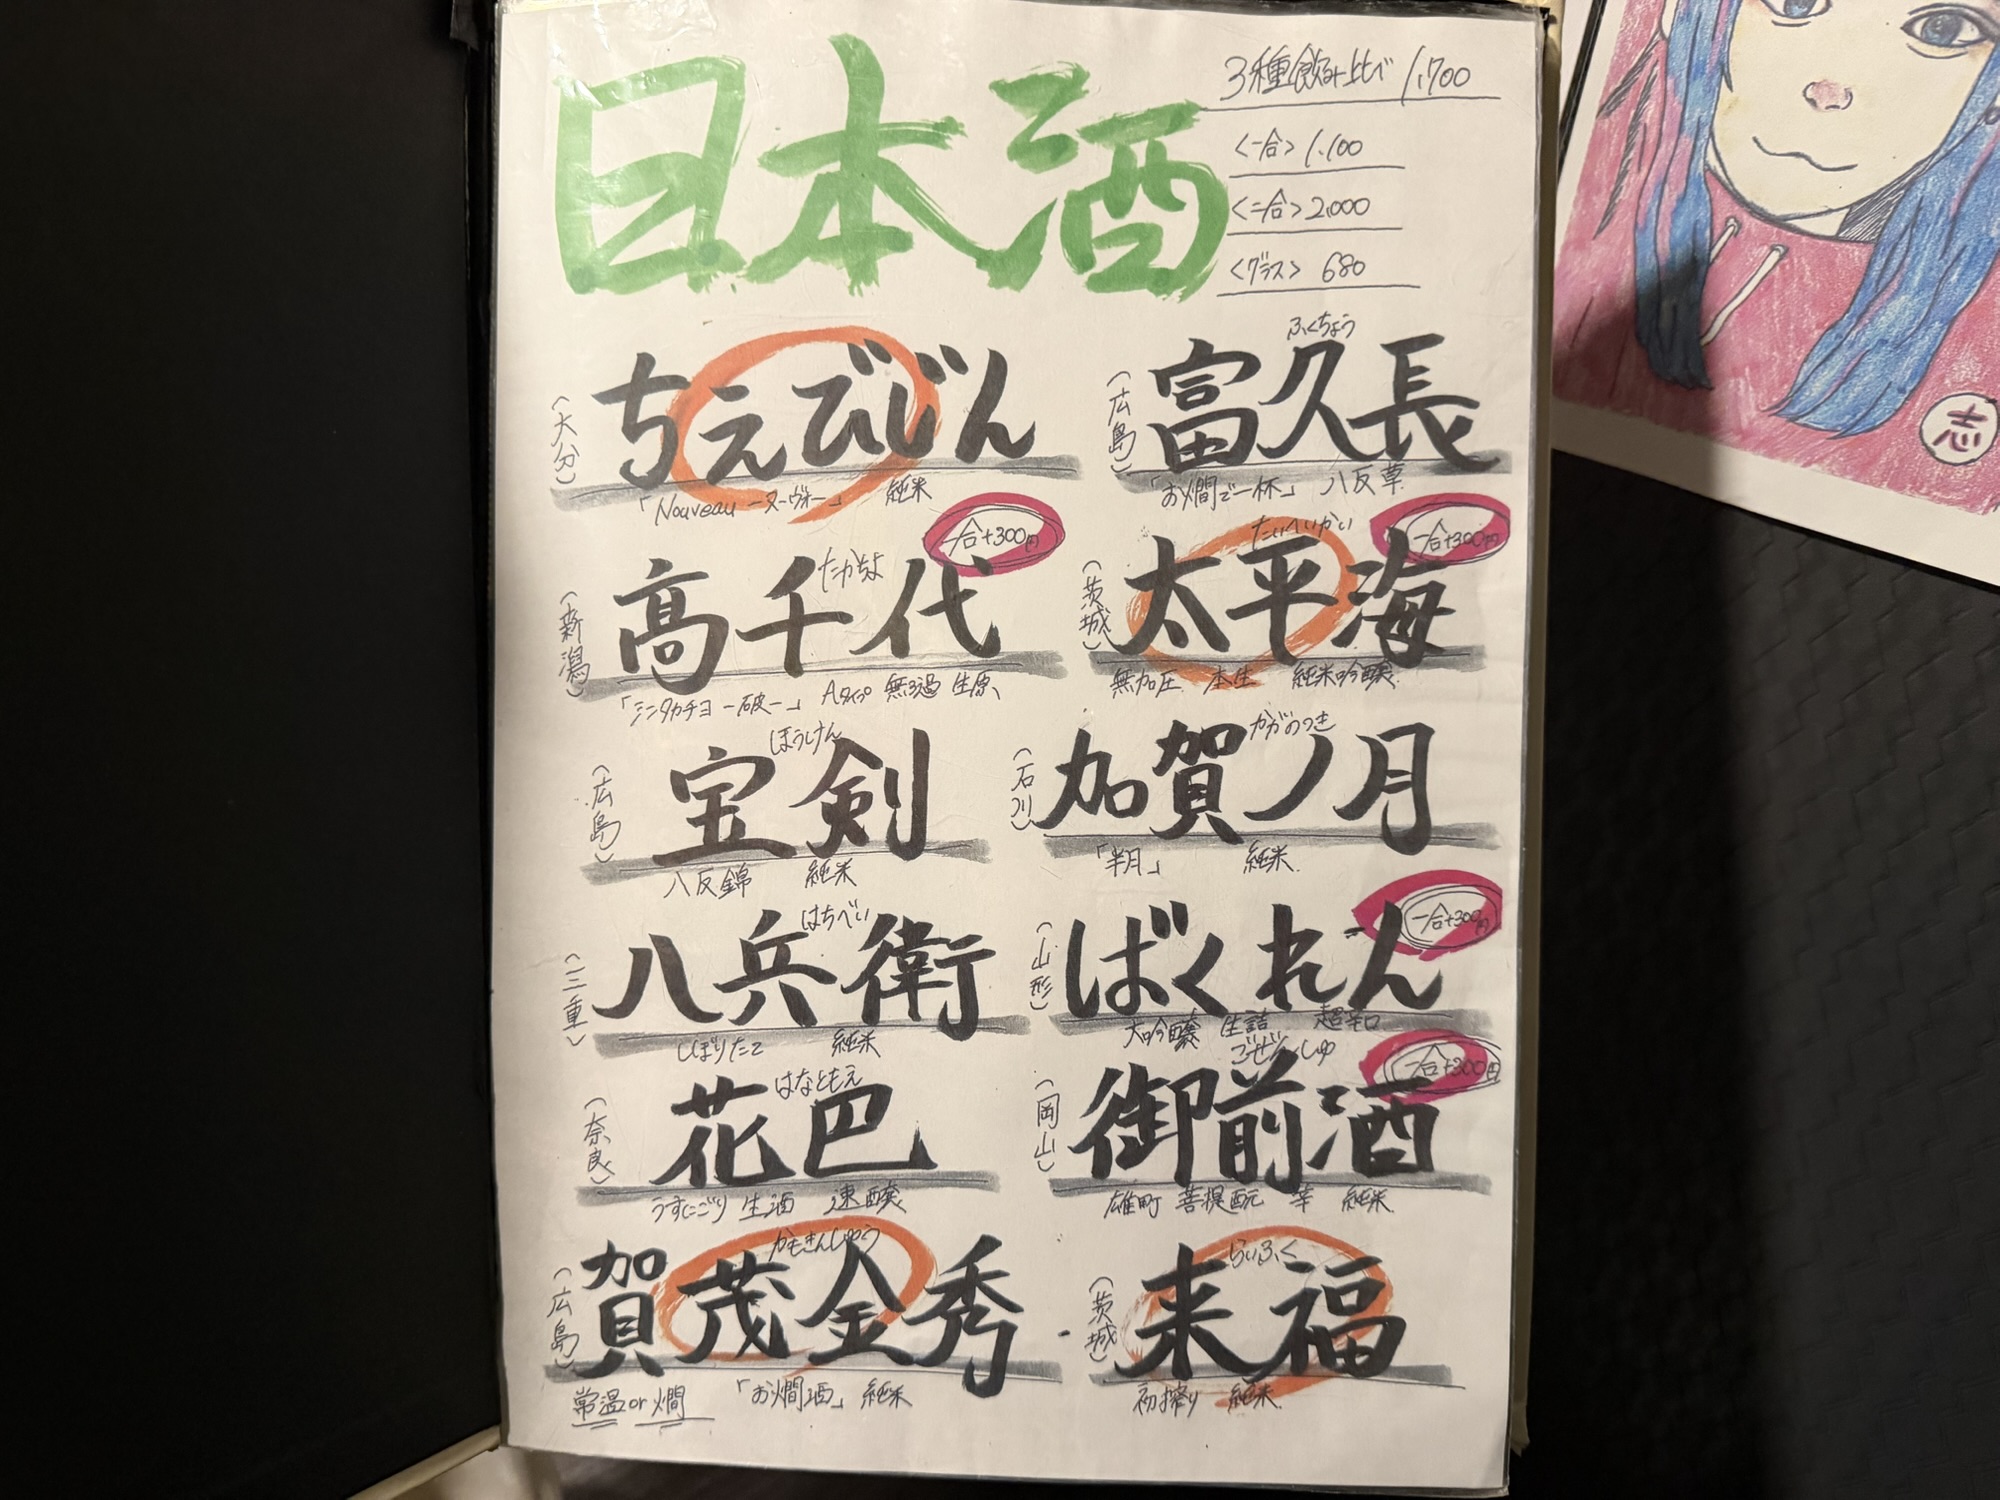 日本酒
3種飲み比べ 1,700
<一合> 1,100
<二合> 2,000
<グラス> 680
(大分)
ちえびじん
「Nouveau ーヌーヴォー」 純米
(広島)
ふくちょう
富久長
「お燗で一杯」 八反草
(新潟)
たかちよ
高千代
一合+300円
「シンタカチヨ ー破ー」 Aタイプ 無ろ過 生原、
(茨城)
たいへいかい
太平海
一合+300円
無加圧 本生 純米吟醸
(広島)
ほうけん
宝剣
八反錦 純米
(石川)
かがのつき
加賀ノ月
「半月」 純米
(三重)
はちべい
八兵衛
しぼりたて 純米
(山形)
ばくれん
一合+300円
大吟醸 生詰 超辛口
(奈良)
はなともえ
花巴
うすにごり 生酒 速醸
(岡山)
ごぜんしゅ
御前酒
一合+300円
雄町 菩提酛 純米
(広島)
かもきんしゅう
賀茂金秀
常温or燗 「お燗酒」 純米
(茨城)
らいふく
来福
初搾り 純米
志